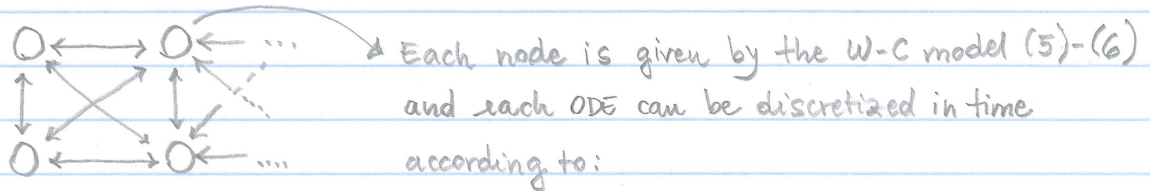 Each node is given by the W-C model (5)-(6)
and each ODE can be discretized in time
according to: